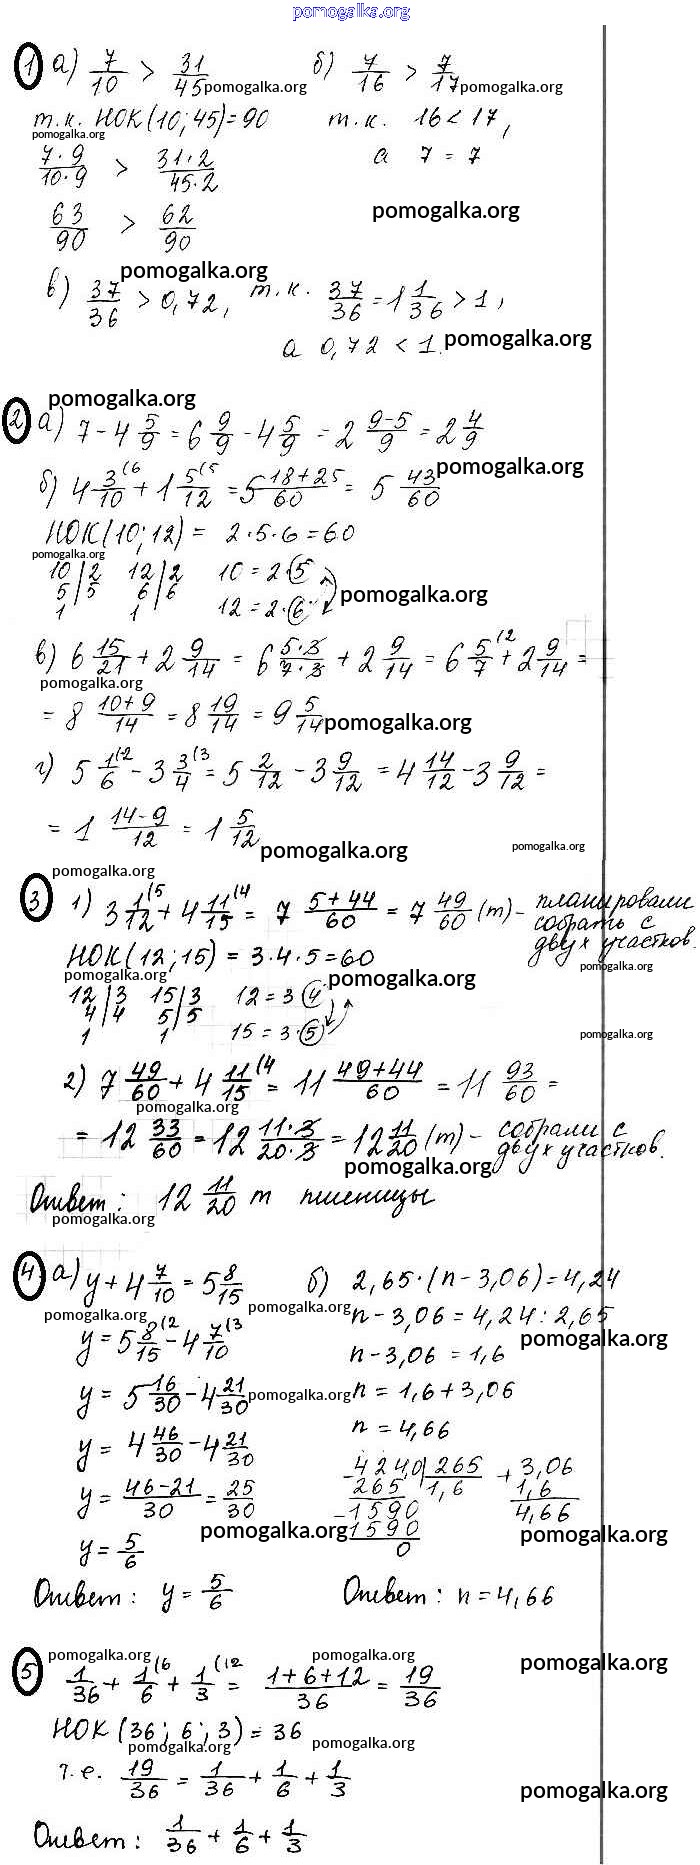 pomogalka.org
1 а) 7/10 > 31/45 б) 7/16 > 7/17
pomogalka.org pomogalka.org
т.к. НОК(10;45)=90 т.к. 16<17,
pomogalka.org
7·9/10·9 > 31·2/45·2 а 7=7
63/90 > 62/90
pomogalka.org
в) 37/36 > 0,72, т.к. 37/36 = 1 1/36 > 1,
pomogalka.org
а 0,72 < 1.
pomogalka.org
pomogalka.org
2 а) 7 - 4 5/9 = 6 9/9 - 4 5/9 = 2 9-5/9 = 2 4/9
б) 4 3/10 (6 + 1 5/12 (5 = 5 18+25/60 = 5 43/60
pomogalka.org
НОК(10;12) = 2·5·6=60
pomogalka.org
10|2 12|2 10=2·5
5|5 6|6 12=2·6
1 1
pomogalka.org
в) 6 15/21 + 2 9/14 = 6 5·3/7·3 + 2 9/14 = 6 5/7 (2 + 2 9/14 =
pomogalka.org
= 8 10+9/14 = 8 19/14 = 9 5/14
pomogalka.org
г) 5 1/6 (2 - 3 3/4 (3 = 5 2/12 - 3 9/12 = 4 14/12 - 3 9/12 =
= 1 14-9/12 = 1 5/12
pomogalka.org pomogalka.org
pomogalka.org
3 1) 3 1/12 (5 + 4 11/15 (4 = 7 5+44/60 = 7 49/60 (т) - планировали
собрать с
двух участков.
НОК(12;15) = 3·4·5=60
pomogalka.org pomogalka.org pomogalka.org
12|3 15|3 12=3·4
4|4 5|5 15=3·5
1 1
pomogalka.org
2) 7 49/60 + 4 11/15 (4 = 11 49+44/60 = 11 93/60 =
pomogalka.org
= 12 33/60 = 12 11·3/20·3 = 12 11/20 (т) - собрали с
двух участков.
pomogalka.org
Ответ: 12 11/20 т пшеницы
pomogalka.org
4 а) y + 4 7/10 = 5 8/15 б) 2,65·(n-3,06)=4,24
pomogalka.org pomogalka.org
y = 5 8/15 (2 - 4 7/10 (3 n-3,06=4,24:2,65
pomogalka.org
n-3,06=1,6
y = 5 16/30 - 4 21/30 n=1,6+3,06
pomogalka.org
y = 4 46/30 - 4 21/30 n=4,66
y = 46-21/30 = 25/30 -424,0|265 + 3,06
265 1,6 1,6
-1590 4,66
1590
0
pomogalka.org pomogalka.org
y = 5/6
Ответ: y = 5/6 Ответ: n=4,66
pomogalka.org pomogalka.org pomogalka.org
5 1/36 + 1/6 (6 + 1/3 (12 = 1+6+12/36 = 19/36
НОК(36;6;3)=36
pomogalka.org pomogalka.org
т.е. 19/36 = 1/36 + 1/6 + 1/3
pomogalka.org
Ответ: 1/36 + 1/6 + 1/3